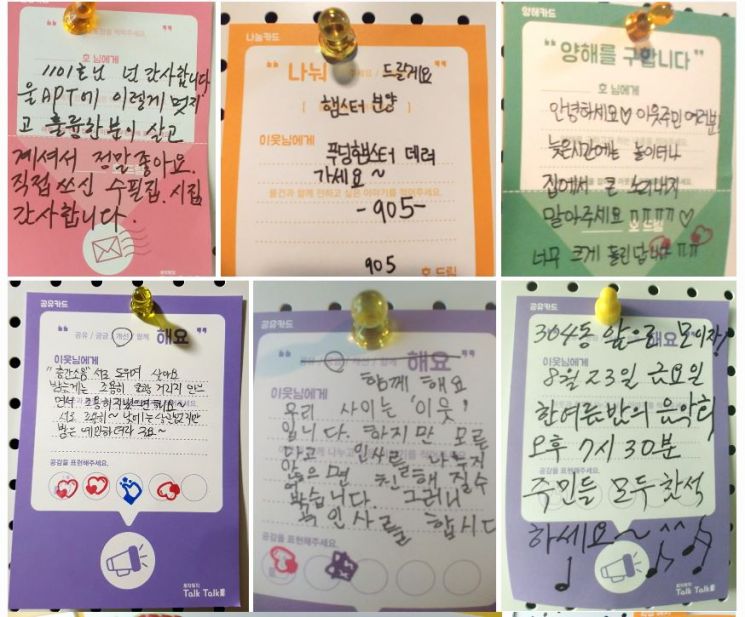 1101호님 넘 감사합니다
울APT에 이렇게 멋지
고 훌륭한분이 살고
계셔서 정말 좋아요.
직접 쓰신 수필집. 시집
감사합니다.
나눔카드
“ 나눠 주세요 / 드릴게요
햄스터 분양
이웃님에게
푸딩햄스터 데려
가세요~
물건과 함께 전하고 싶은 이야기를 적어주세요.
-905-
905 호 드림
양해카드
“ 양해를 구합니다 ”
호 님에게
안녕하세요♡ 이웃주민 여러분!
늦은시간에는 놀이터나
집에서 큰 노래내지
말아주세요 ㅠㅠㅠㅠ♡
호 드림
너무 크게 들린답니다 ㅠㅠ
공유카드
“ 공유 / 궁금 / 개선 / 함께 해요 ”
이웃님에게
"층간소음" 서로 도우며 살아요
밤늦게는 조용히
면서 조용히 지냈으면 해요~
공감을 표현해주세요.
Talk Talk
공유카드
개선 / 함께 해요
이웃님에게
함께 해요
우리 사이는 '이웃'
입니다. 하지만 모른
다고 인사를 나누지
않으면 친해 질수
없습니다 그러니
꼭 인사를 합시다
공감을 표현해주세요.
공유카드
304동 앞으로 모이자!
해요
이웃님에게
8월 23일 금요일
한여름밤의 음악회
오후 7시 30분
공감을 표현해주세요.
주민들 모두 참석
하세요~ ^^
Talk Talk